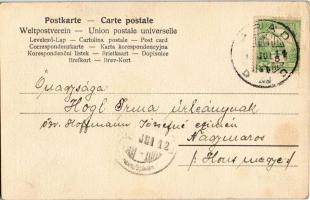 Postkarte - Carte postale
Weltpostverein - Union postale universelle
Levelező-Lap - Cartolina postale - Post card
Correspondenzkarte - Karta korespondencyjna
Korespondenční lístek - Brietkaart - Dopisnice
Brefkort - Brev-Kort
Nagysága
Högl Irma úrleánynak
özv. Hoffmann Józsefné czimén
Nagymaros
/: Hont megye :/
JUL 12